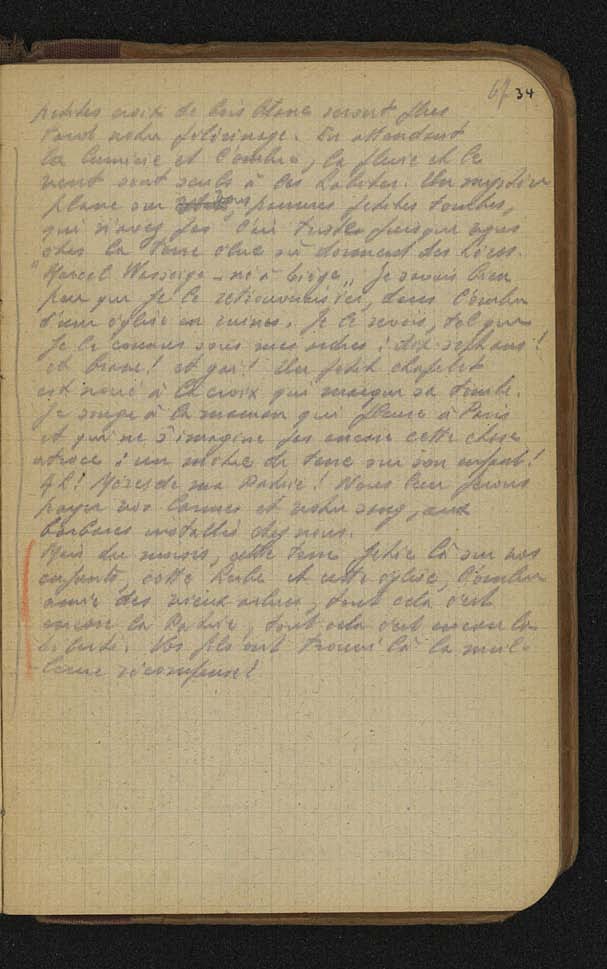 67 34
petites croix de bois blanc seront plus
tard notre pèlerinage. En attendant
la lumière et l'ombre, la pluie et le
vent sont seuls à les habiter. Un mystère
plane sur vous, pauvres petites tombes,
qui n'avez pas l'air tristes puisque vous
êtes la terre où dorment des héros.
"Marcel Wasseige - né à Liège", je savais bien
que je le retrouverais ici, dans l'ombre
d'une église en ruines. Je le revois, tel que
je le connus sous mes ordres : dix-sept ans !
et brave ! et gai ! Un petit chapelet
est noué à la croix qui marque sa tombe.
Je songe à la maman qui pleure à Paris
et qui ne s'imagine pas encore cette chose
atroce : un mètre de terre sur son enfant !
Ah ! Mères de ma Patrie ! Nous leur ferons
payer vos larmes et notre sang, aux
barbares installés chez nous.
Mais du moins, cette terre jetée là sur vos
enfants, cette herbe et cette église, l'ombre
amie des vieux arbres, tout cela c'est
encore la Patrie, tout cela c'est encore la
liberté. Vos fils ont trouvé là la meil-
leure récompense !